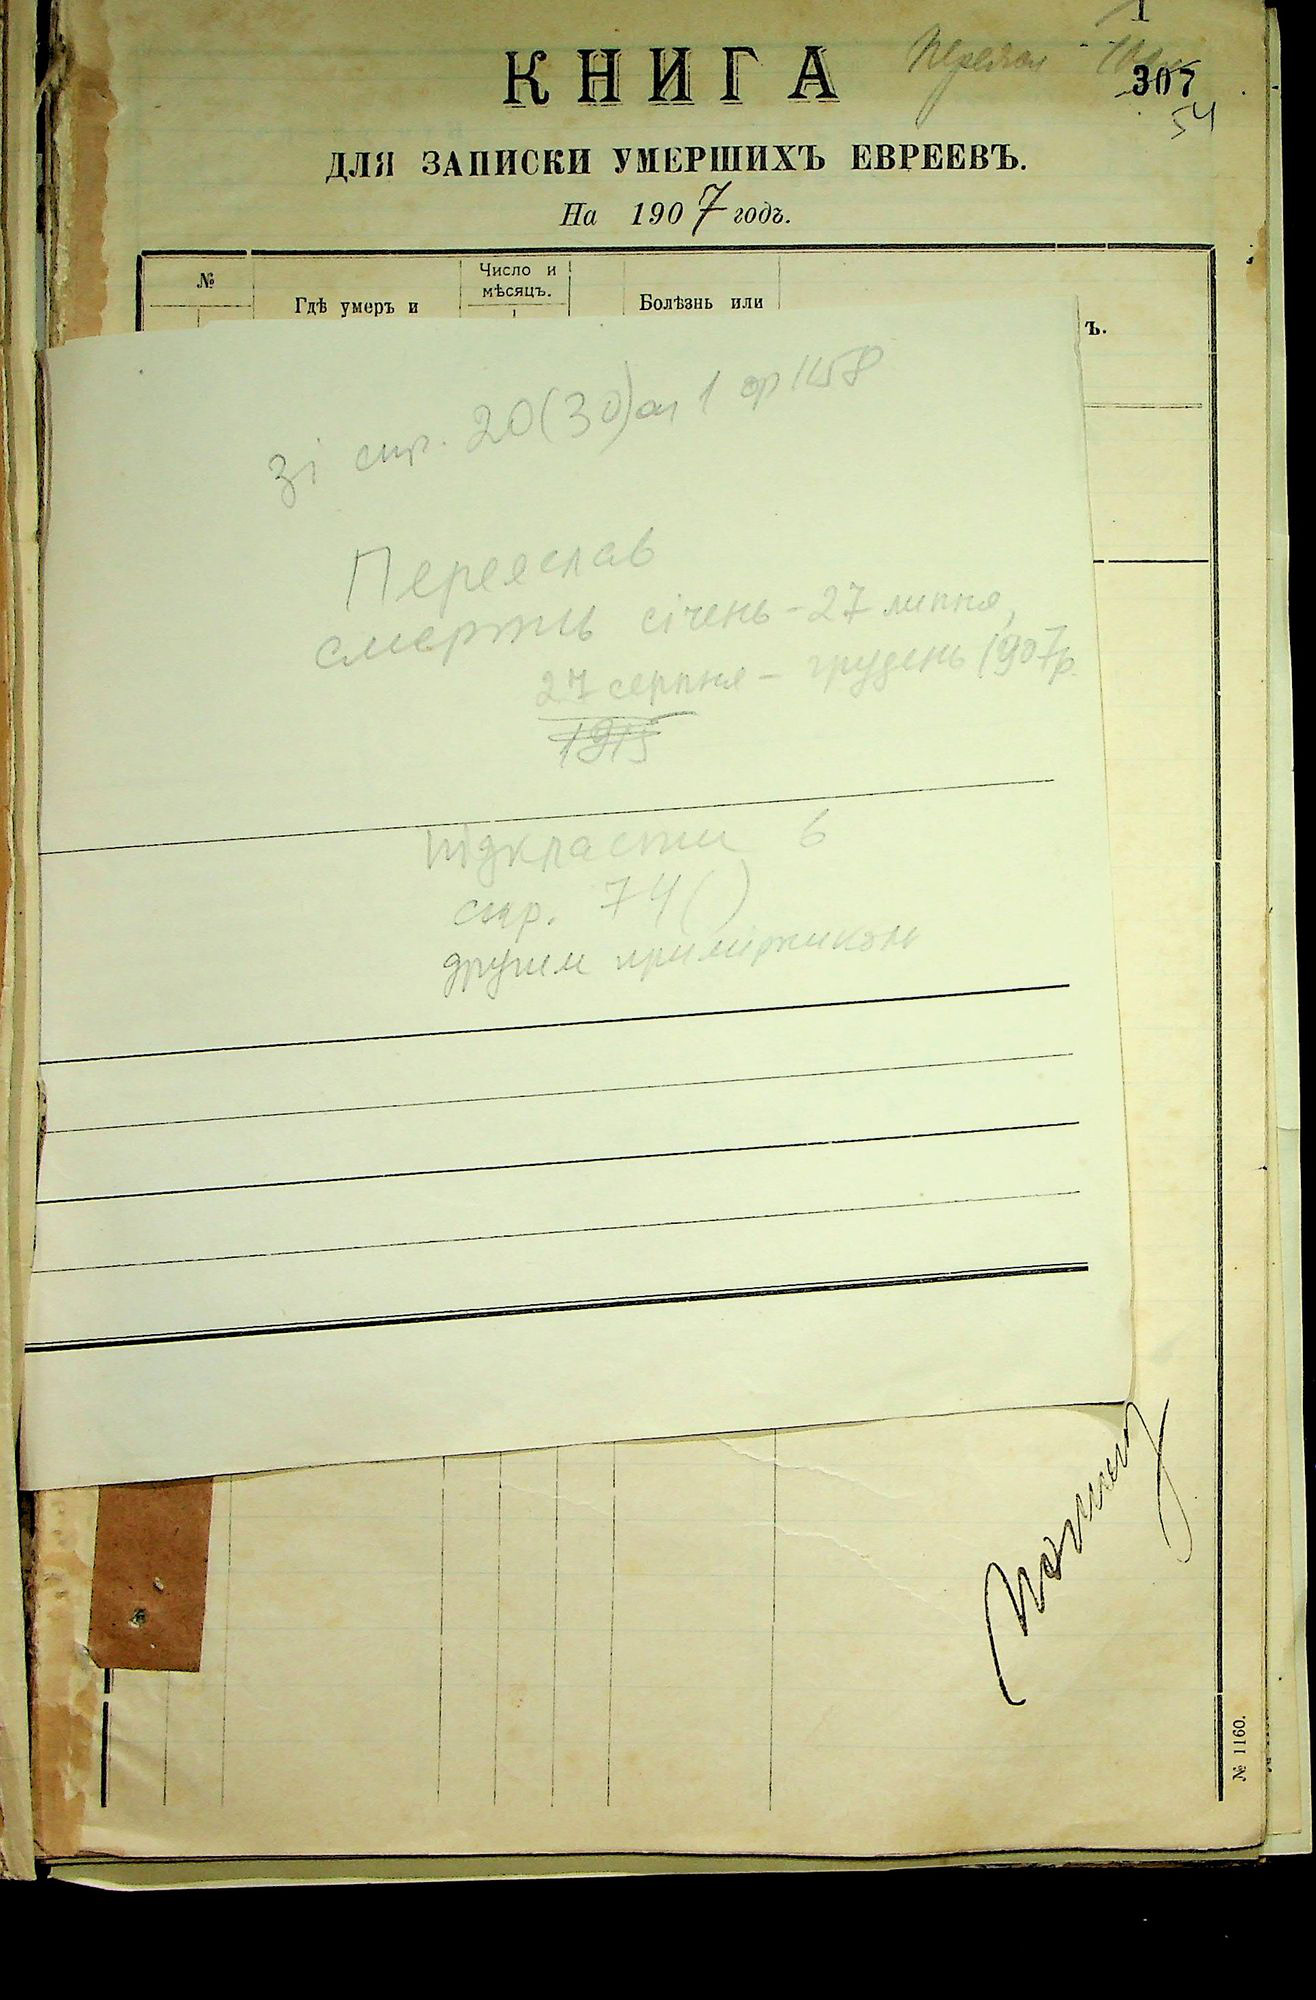 1
КНИГА
307
54
ДЛЯ ЗАПИСКИ УМЕРШИХЪ ЕВРЕЕВЪ.
На 1907 годъ.
№
Гдѣ умеръ и
Число и
мѣсяцъ.
Болѣзнь или
ъ.
зі спр. 20(30) оп 1 ф 1158
Переяслав
смерть січень - 27 липня,
27 серпня - грудень 1907р.
1915
підкласти в
спр. 74( )
другим примірником
№ 1160.